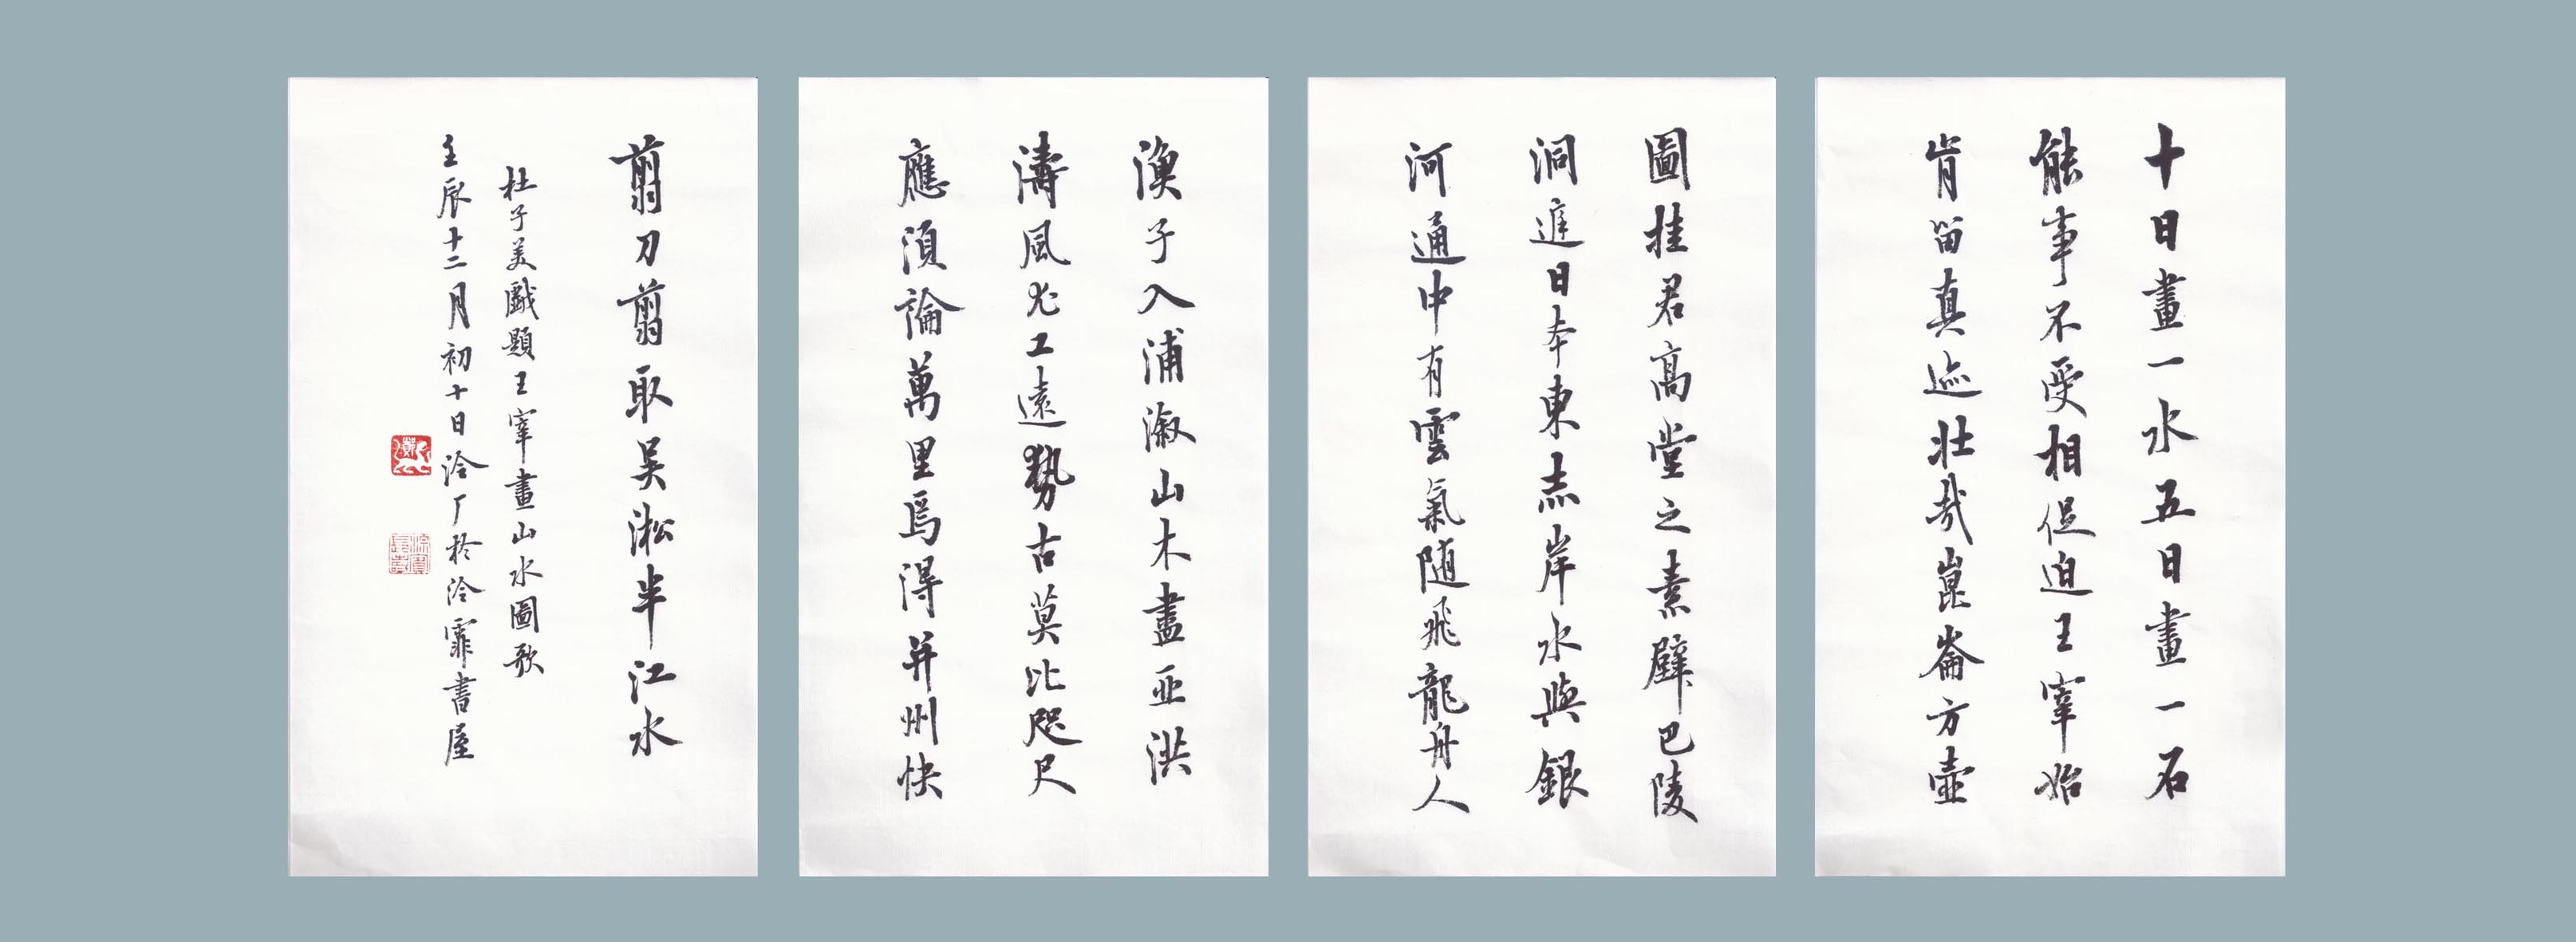 十日畫一水五日畫一石
能事不受相促迫王宰始
肯留真迹壯哉崑崙方壺
圖挂君高堂之素壁巴陵
洞進日本東赤岸水與銀
河通中有雲氣随飛龍舟人
漁子入浦溆山木盡亞洪
濤風尤工遠勢古莫比咫尺
應須論萬里焉得并州快
翦刀翦取吴淞半江水
杜子美戲題王宰畫山水圖歌
壬辰十二月初十日泠厂於泠霏書屋